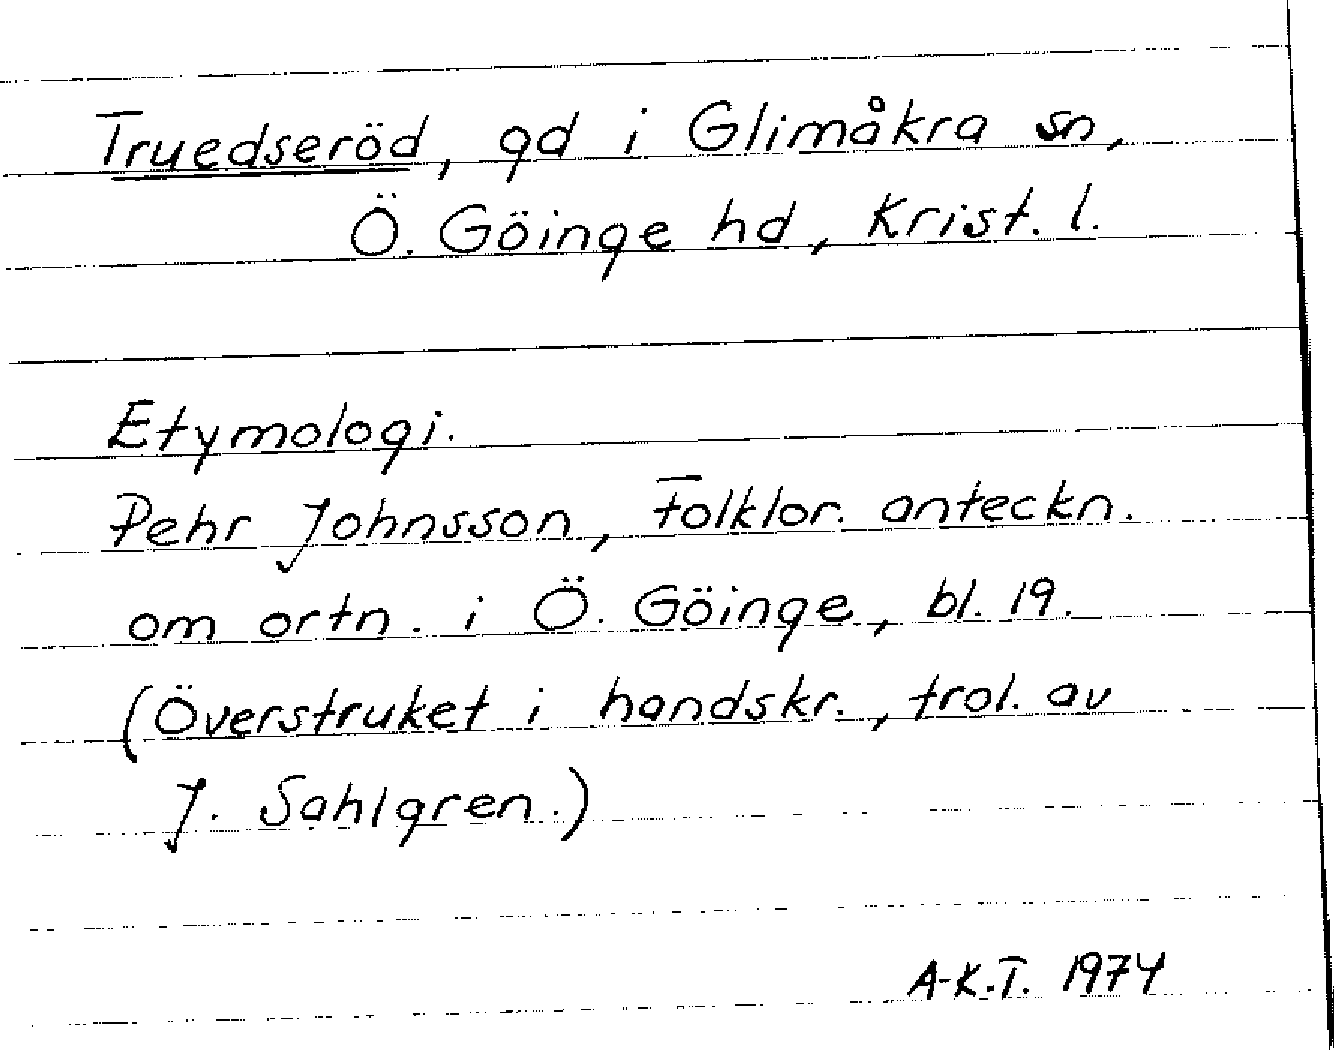 Truedseröd, gd i Glimåkra sn,
Ö. Göinge hd, Krist. l.
Etymologi.
Pehr Johnsson, Folklor. anteckn.
om ortn. i Ö. Göinge, bl. 19.
(Överstruket i handskr., trol. av
J. Sahlgren.)
A-K.T. 1974